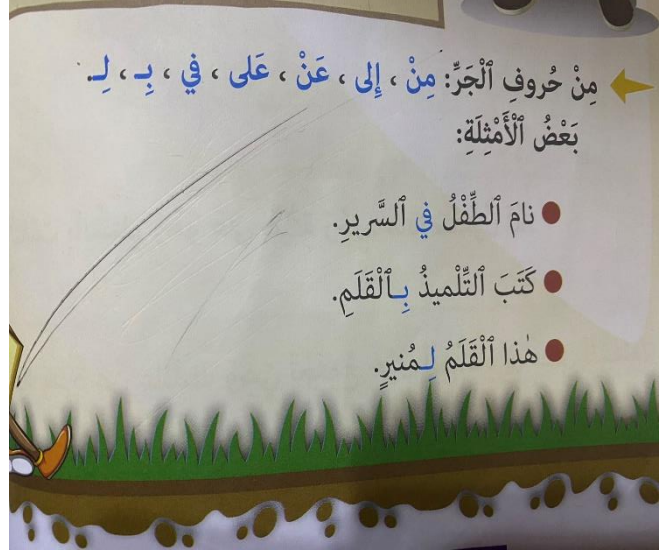 مِنْ حُروفِ ٱلْجَرِّ: مِنْ ، إِلى ، عَنْ ، عَلى ، في ، بِـ ، لِـ.
بَعْضُ ٱلْأَمْثِلَةِ:
● نامَ ٱلطِّفْلُ في ٱلسَّريرِ.
● كَتَبَ ٱلتِّلْميذُ بِـٱلْقَلَمِ.
● هٰذا ٱلْقَلَمُ لِـمُنيرٍ.